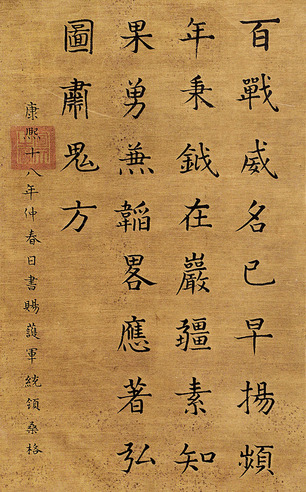 百戰威名已早揚頻
年秉鉞在巖疆素知
果勇兼韜畧應著弘
圖肅鬼方
康熙十八年仲春日書賜護軍統領桑格